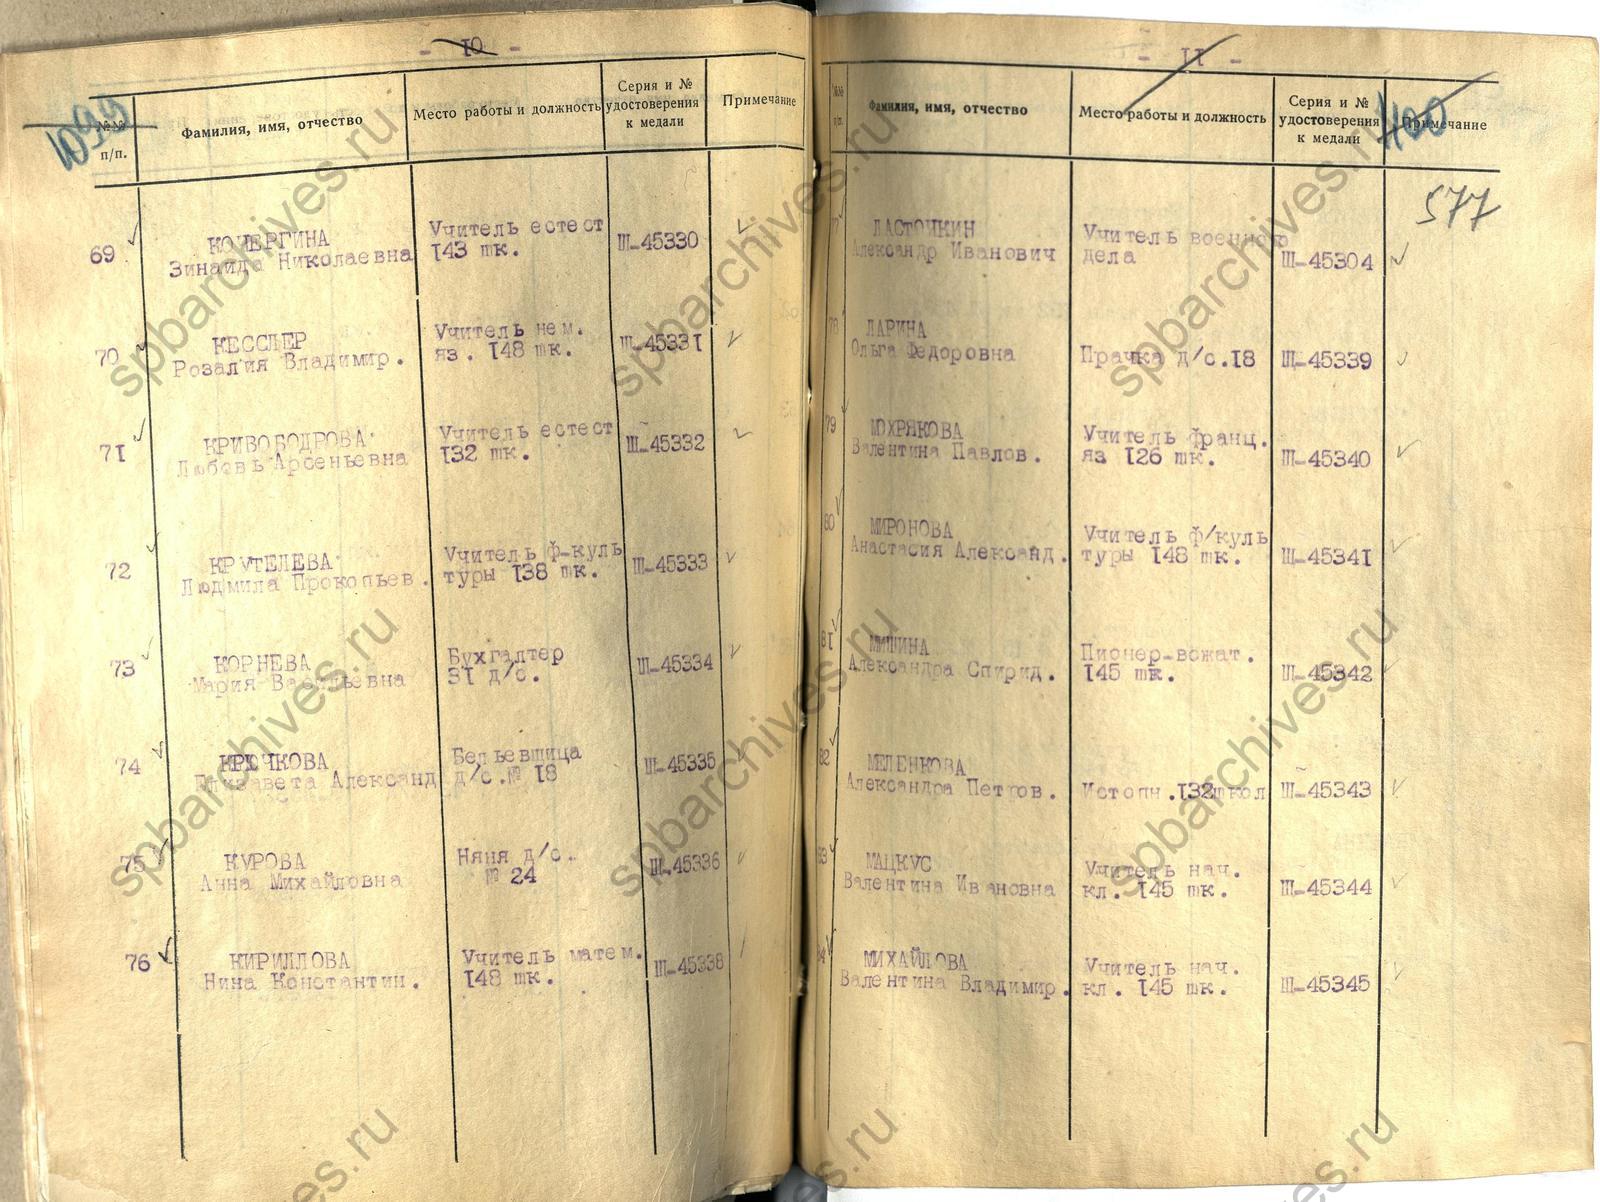 - 10 -
№№ п/п.
Фамилия, имя, отчество
Место работы и должность
Серия и № удостоверения к медали
Примечание
69
КОЧЕРГИНА
Зинаида Николаевна
Учитель естест
143 шк.
Ш-45330
70
КЕССЛЕР
Розалия Владимир.
Учитель нем.
яз. 148 шк.
Ш-45331
71
КРИВОБОДРОВА
Любовь Арсеньевна
Учитель естест
132 шк.
Ш-45332
72
КРУТЕЛЕВА
Людмила Прокопьев.
Учитель ф-куль
туры 138 шк.
Ш-45333
73
КОРНЕВА
Мария Васильевна
Бухгалтер
31 д/с.
Ш-45334
74
КРЮЧКОВА
Елизавета Александ
Бельевщица
д/с.№ 18
Ш-45335
75
КУРОВА
Анна Михайловна
Няня д/с.
№ 24
Ш-45336
76
КИРИЛЛОВА
Нина Константин.
Учитель матем.
148 шк.
Ш-45338
- 11 -
№№ п/п.
Фамилия, имя, отчество
Место работы и должность
Серия и № удостоверения к медали
Примечание
400
577
77
ЛАСТОЧКИН
Александр Иванович
Учитель военного
дела
Ш-45304
78
ЛАРИНА
Ольга Федоровна
Прачка д/с.18
Ш-45339
79
МОХРЯКОВА
Валентина Павлов.
Учитель франц.
яз 126 шк.
Ш-45340
80
МИРОНОВА
Анастасия Александ.
Учитель ф/куль
туры 148 шк.
Ш-45341
81
МИШИНА
Александра Спирид.
Пионер-вожат.
145 шк.
Ш-45342
82
МЕЛЕНКОВА
Александра Петров.
Истопн.132школ
Ш-45343
83
МАЦКУС
Валентина Ивановна
Учитель нач.
кл. 145 шк.
Ш-45344
84
МИХАЙЛОВА
Валентина Владимир.
Учитель нач.
кл. 145 шк.
Ш-45345
spbarchives.ru
spbarchives.ru
spbarchives.ru
spbarchives.ru
spbarchives.ru
spbarchives.ru